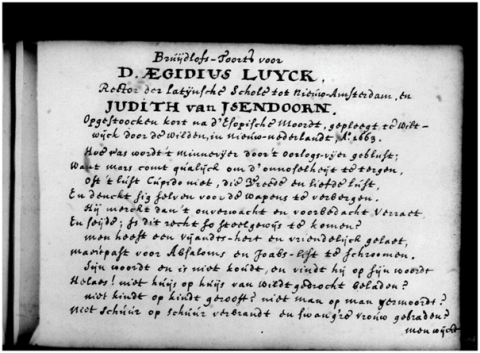 Bruÿdlofs-Toorts voor
D. ÆGIDIUS LUYCK,
Rector der latÿnsche Schole tot Nieuw-Amsterdam, en
JUDITH van ISENDOORN.
Opgestoocken kort na d'Esopische Moordt, gepleegt te Wilt-
wÿck door de Wilden, in nieuw-nederlandt, Aº. 1663.
Hoe ras wordt 't minnevÿer door 't oorlogs-vÿer geblust;
Want mars comt qualÿck om d'onnoselheÿt te tergen,
Oft 't lust Cupido niet, die Vreede en liefde lust,
En denckt sig selven voor de wapens te verbergen.
Hÿ merckt dan 't onverwacht en voorbedacht Verraet,
En seÿde; Is dit recht so steelgewÿs te komen?
men heeft een vÿandts-hert en vriendelÿck gelaet,
maer past voor Absaloms en Joabs-list te schroomen.
Sÿn woordt en is niet koudt, en vindt hÿ op sÿn woordt
Helaes! niet huÿs op huÿs van Wildt gedrocht beladen?
niet kindt op kindt gerooft? niet man op man vermoordt?
niet schuur op schuur verbrandt en swang're vrouw gebraden?
men wÿckt